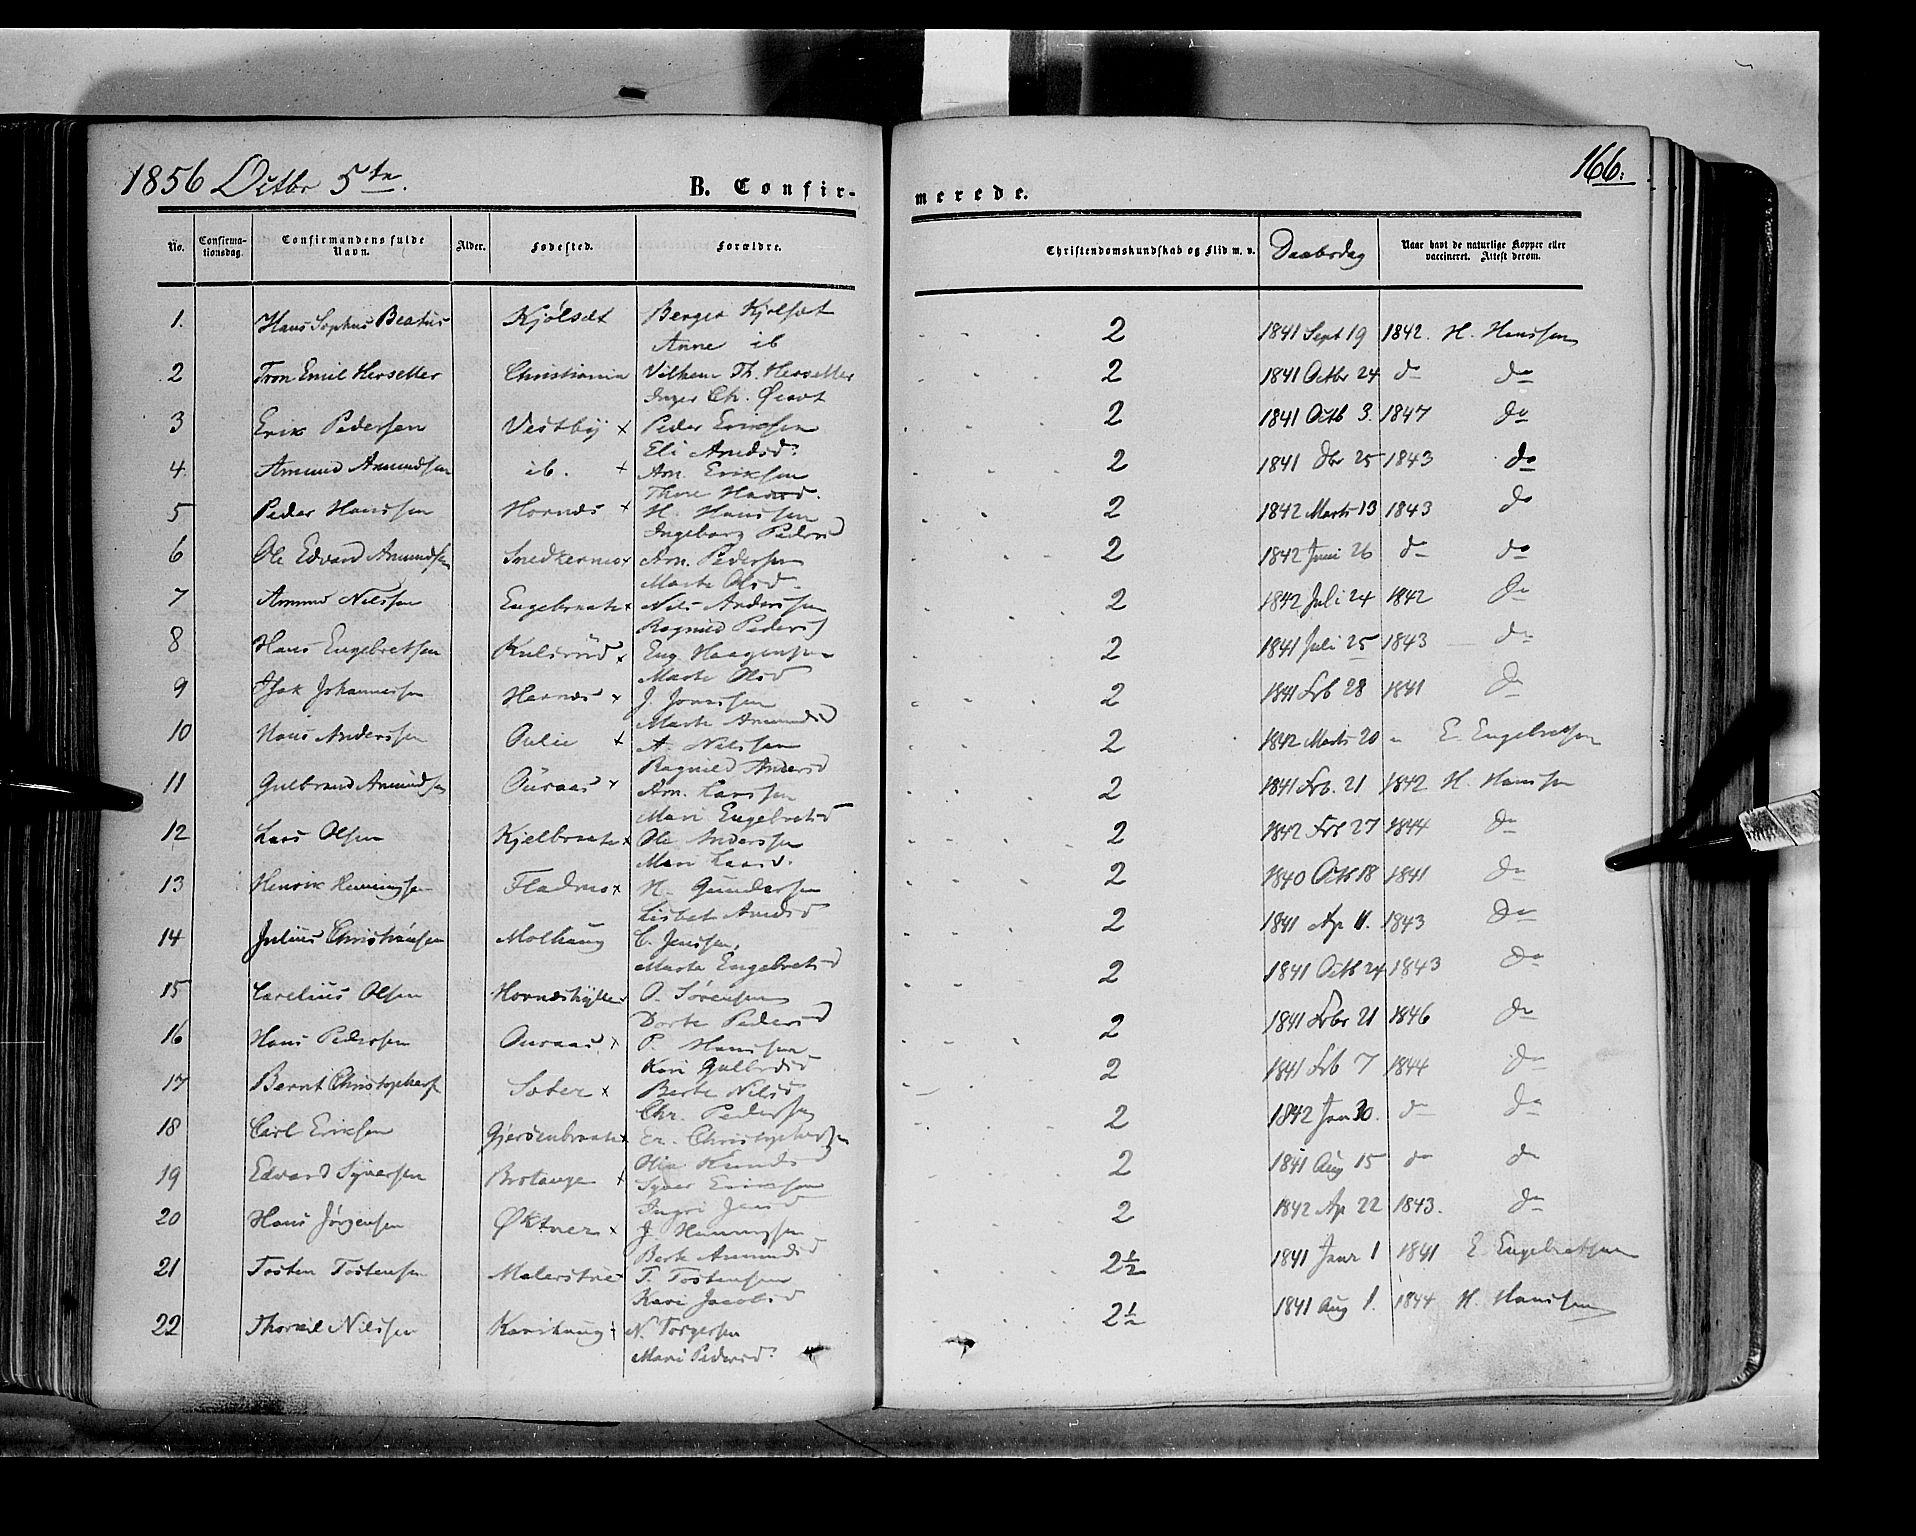 1856 Octbr 5te. B. Confir- merede. 166.
No. Confirma-tionsdag. Confirmandens fulde Navn. Alder. Fødested. Forældre. Christendomskundskab og Flid m. v. Daabsdag Naar havt de naturlige Kopper eller vaccineret. Attest derom.
1. Hans Sophus Beatus Kjölsæt Berger Kjolsæt 2 1841 Sept 19 1842. H. Hanssen
Anne ib
2 Tron Emil Herseller Christiania Vilhem Th. Herseller 2 1841 Octbr 24 do do
Inger Ch.
3 Erik Pedersen Vestby x Peder Eriksen 2 1841 Octb 3. 1847 do
Eli Amdsd.
4. Amund Amundsen ib. x Am. Eriksen 2 1841 Dbr 25 1843 do
Thore Hansd.
5 Peder Hanssen Hornæs x H. Hanssen 2 1842 Marts 13 1843 do
Ingeborg Pedersd
6 Ole Edvard Amundsen Snedkernes x Am. Pedersen 2 1842 Juni 26 do do
Marte Olsd.
7 Amund Nilssen Engebraate x Nils Anderssen 2 1842 Juli 24 1842 do
Ragnild Pedersd
8 Hans Engebretsen Kulsrud x Eng. Haagensen 2 1841 Juli 25 1843 do
Marte Olsd
9 Isak Johannessen Hornæs x J. Jonassen 2 1841 Frb 28 1841 do
Marte Amundsd
10 Hans Anderssen x A. Nilssen 2 1842 Marts 20 " E. Engebretsen
Ragnild Andersd
11 Gulbrand Amundsen Ouraas x Am. Larssen 2 1841 Frb. 21 1842 H. Hanssen
Mari Engebretsd
12 Lars Olsen Kjelbraate x Ole Anderssen 2 1842 Frb 27 1844 do
Mari Larsd.
13 Henrik Henningsen Fladnes x H. Gundersen 2 1840 Octb 18 1841 do
Lisbet Amdsd
14 Julius Christiansen Molhaug C. Jenssen. 2 1841 Ap 11. 1843 do
Marte Engebretsd
15 Carelius Olsen O. Sørensen 2 1841 Octb 24 1843 do
Dorte Pedersd
16 Hans Pederssen Ouraas x P. Hanssen 2 1841 Frbr 21 1846 do
Kari Gulbrdsd
17 Bernt Christophers x Berte Nilsd 2 1841 Frb 7 1844 do
Chr. Pedersen
18 Carl Eriksen Gjerdenbraate x Er. Christophersen 2 1842 Jan 30. do do
19 Edvard Syversen x Syver Eriksen 2 1841 Aug 15 do do
Ingri Jensd
20 Hans Jørgensen Øktner x J. Henningsen 2 1842 Ap 22 1843. do
Berte Amundsd
21 Tosten Tostensen T. Tostensen 2½ 1841 Janr 1 1841 E Engebretsen
Kari Jacobsd
22 Thorvil Nilssen Karihaug N. Torgersen 2½ 1841 Aug 1. 1844 H. Hanssen
Mari Pedersd.